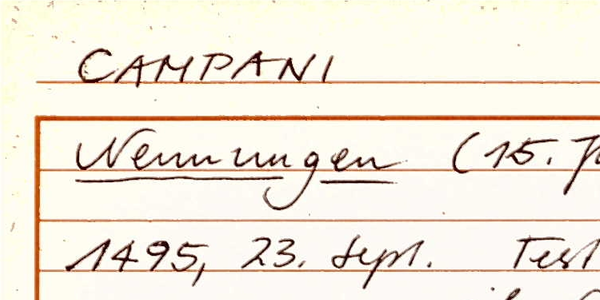 CAMPANI
Nennungen (15.
1495, 23. Sept. Test